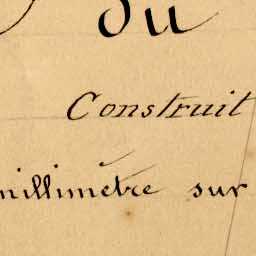 du
Construit
millimètre sur